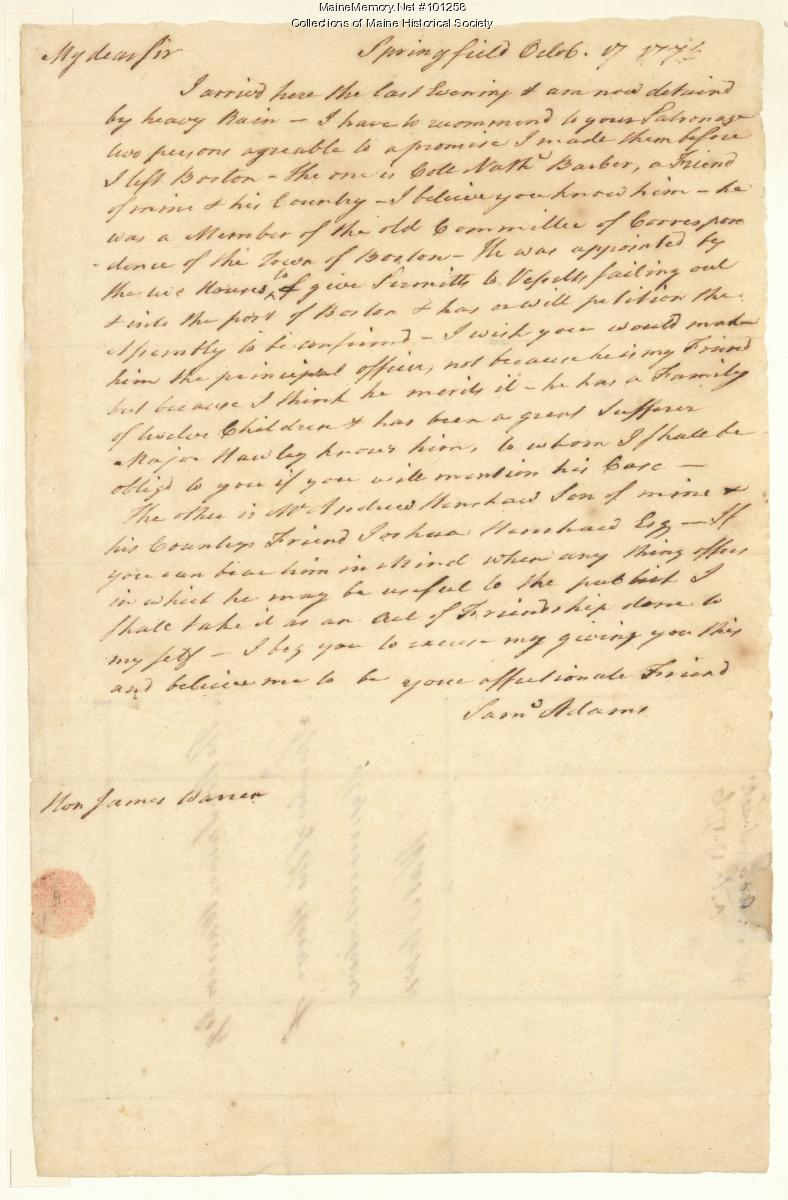 MaineMemory.Net #101258
Collections of Maine Historical Society
My dear sir Springfield Octob. 17 1776
I arrivd here the last Evening & am now detaind
by heavy Rain – I have to recommend to your Patronage
two persons agreable to a promise I made them before
I left Boston – The one is Coll Nathl Barber, a Friend
of mine & his Country – I believe you know him – he
was a Member of the old Committee of Correspon
dence of the Town of Boston – He was appointed by
the two Houses to give Permitts to Vessells sailing out
& into the port of Boston & has or will petition the
Assembly to be confirmd – I wish you would make
him the principal officer, not because he is my Friend
but because I think he merits it – he has a Family
of twelve Children & has been a great Sufferer
Major Hawley knows him, to whom I shall be
obligd to you if you will mention his Case –
The other is Mr Andrew Henshaw Son of mine &
his Countrys Friend Joshua Henshaw Esq – If
you can bear him in Mind when any thing offers
in which he may be useful to the publick I
shall take it as an Act of Friendship done to
my self – I beg you to excuse my giving you this
and believe me to be your affectionate Friend
Saml Adams
Hon James Warren